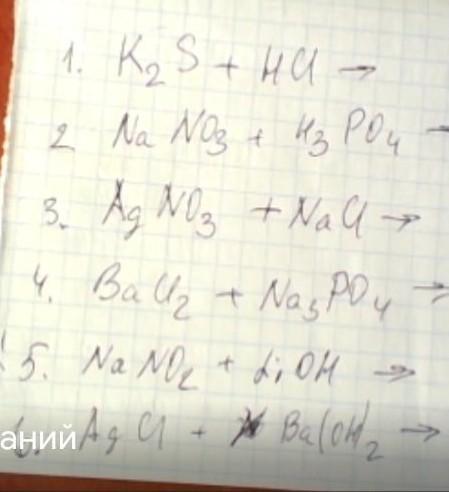 1. K2S + HCl →
2 NaNO3 + H3PO4 →
3. AgNO3 + NaCl →
4. BaCl2 + Na3PO4 →
5. NaNO2 + LiOH →
6. AgCl + Ba(OH)2 →
аний